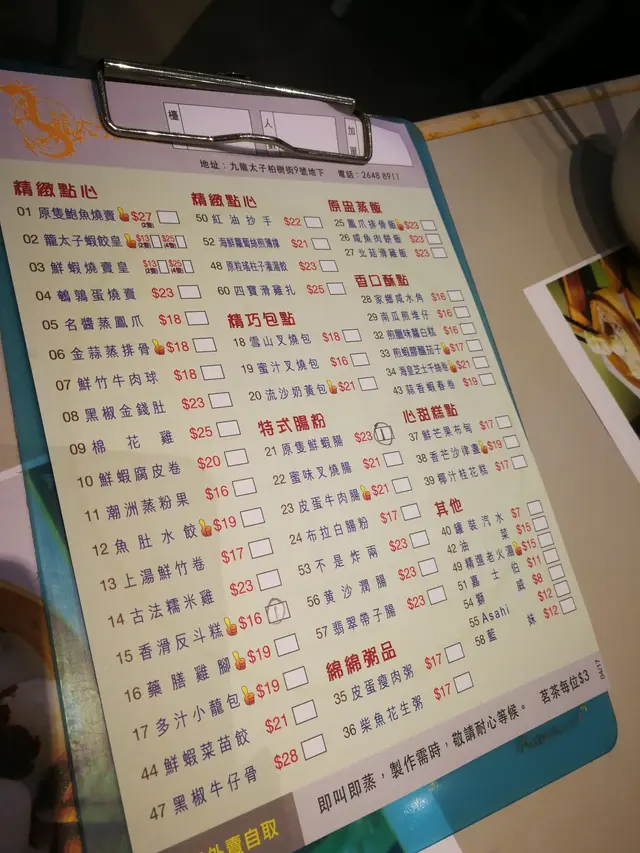 檯
人
加
地址：九龍太子柏樹街9號地下　電話：2648 8911
精緻點心
01 原隻鮑魚燒賣 $27
02 龍太子蝦餃皇 $13 $25
03 鮮蝦燒賣皇 $13 $25
04 鵪鶉蛋燒賣 $23
05 名醬蒸鳳爪 $18
06 金蒜蒸排骨 $18
07 鮮竹牛肉球 $18
08 黑椒金錢肚 $23
09 棉花雞 $25
10 鮮蝦腐皮卷 $20
11 潮洲蒸粉果 $16
12 魚肚水餃 $19
13 上湯鮮竹卷 $17
14 古法糯米雞 $23
15 香滑反斗糕 $16
16 藥膳雞腳 $19
17 多汁小籠包 $19
44 鮮蝦菜苗餃 $21
47 黑椒牛仔骨 $28
精緻點心
50 紅油抄手 $22
52 $21
48 原粒瑤柱灌湯餃 $23
60 四寶滑雞扎 $25
精巧包點
18 雪山叉燒包 $18
19 蜜汁叉燒包 $16
20 流沙奶黃包 $21
特式腸粉
21 原隻鮮蝦腸 $23
22 蜜味叉燒腸 $21
23 皮蛋牛肉腸 $21
24 布拉白腸粉 $17
53 不是炸兩 $23
56 黃沙潤腸 $23
57 翡翠帶子腸 $23
綿綿粥品
35 皮蛋瘦肉粥 $17
36 柴魚花生粥 $17
原盅蒸飯
25 鳳爪排骨飯 $23
26 咸魚肉餅飯 $23
27 北菇滑雞飯 $23
香口酥點
28 家鄉咸水角 $16
29 南瓜煎堆仔 $16
32 煎臘味蘿白糕 $16
33 煎蝦膠釀茄子 $17
34 海皇芝士千絲卷 $21
43 蒜香蝦春卷 $19
心甜糕點
37 鮮芒果布甸 $17
38 香芒沙律 $19
39 椰汁桂花糕 $17
其他
40 罐裝汽水 $7
42 油菜 $15
49 精選老火湯 $15
51 嘉士伯 $11
54 獅威 $8
55 Asahi $12
58 藍妹 $12
即叫即蒸，製作需時，敬請耐心等候。　茗茶每位$3
0417
外賣自取